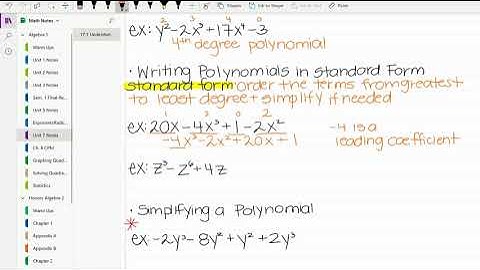 Math Notes
Algebra 1
Warm Ups
Unit 1 Notes
Unit 2 Notes
Unit 3 Notes
Unit 4 Notes
Unit 5 Notes
Unit 7 Notes
Ch. 8 CPM
Statistics
Honors Algebra 2
Warm Ups
Chapter 1
Appendix A
Appendix B
Chapter 2
2 3 4 0
ex: y²-2x³+17x⁴-3
4th degree polynomial
· Writing Polynomials in Standard Form
standard form: order the terms from greatest
to least degree + simplify if needed
1 3 0 2
ex: 20x-4x³+1-2x²
-4x³-2x²+20x+1
-4 is a
leading coefficient
ex: z³-z⁶+4z
· Simplifying a Polynomial
*
ex: -2y³-8y²+y²+2y³